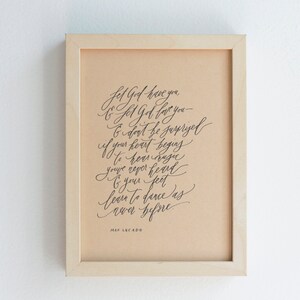 Let God have you
& let God love you
& don't be surprised
if your heart begins
to hear music
you've never heard
& your feet
learn to dance as
never before
MAX LUCADO